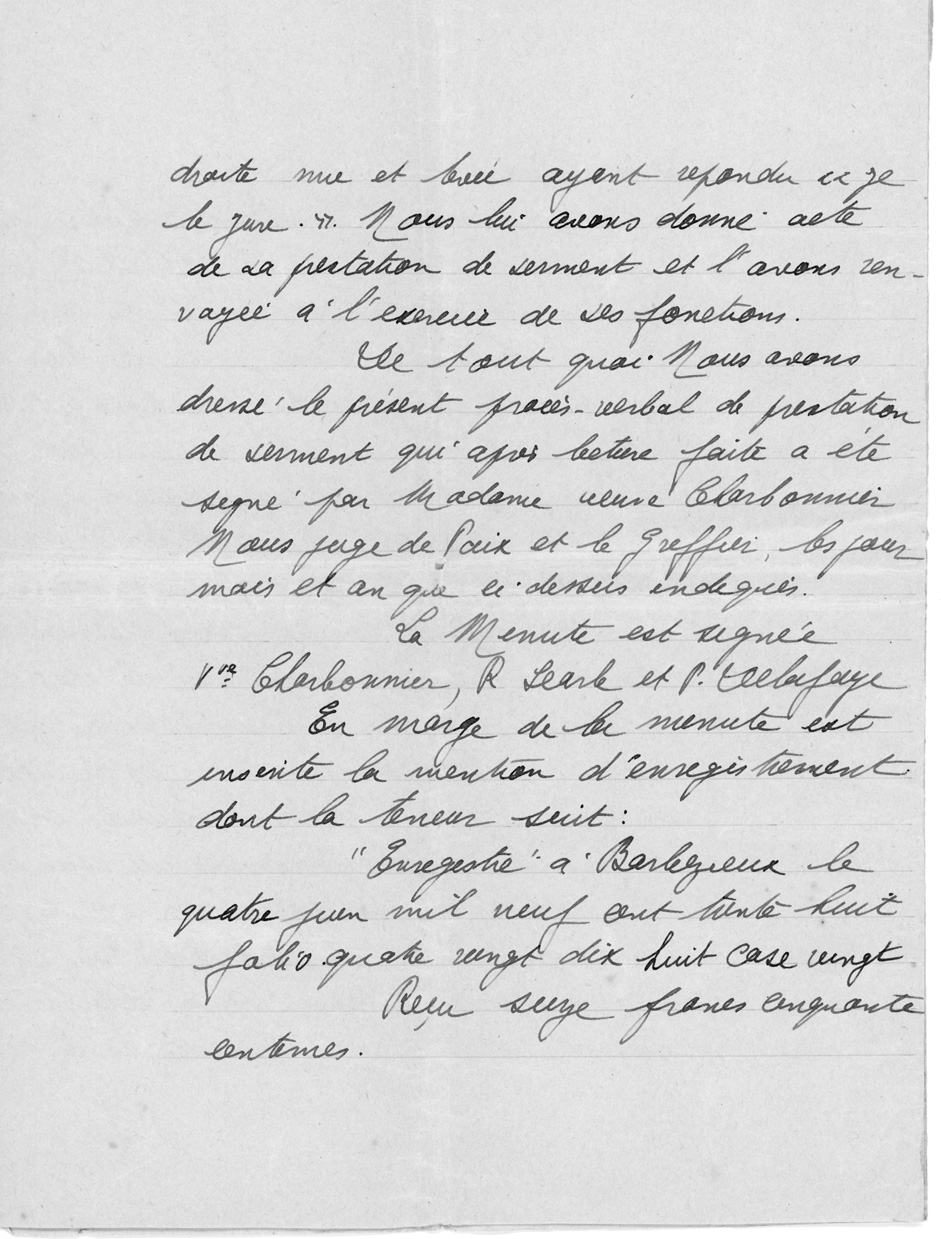 droite nue et levée ayant repondu « je
le jure ». Nous lui avons donné acte
de sa prestation de serment et l'avons ren-
voyée à l'exercice de ses fonctions.
De tout quoi Nous avons
dressé le présent procès-verbal de prestation
de serment qui après lecture faite a été
signé par Madame veuve Charbonnier
Nous juge de Paix et le Greffier, les jour
mois et an que ci-dessus indiqués.
La Minute est signée
Vve Charbonnier, R et P. Delafaye
En marge de la minute est
inscrite la mention d'enregistrement
dont la teneur suit :
"Enregistré" à Barbezieux le
quatre juin mil neuf cent trente huit
folio quatre vingt dix huit case vingt
Reçu seize francs cinquante
centimes.